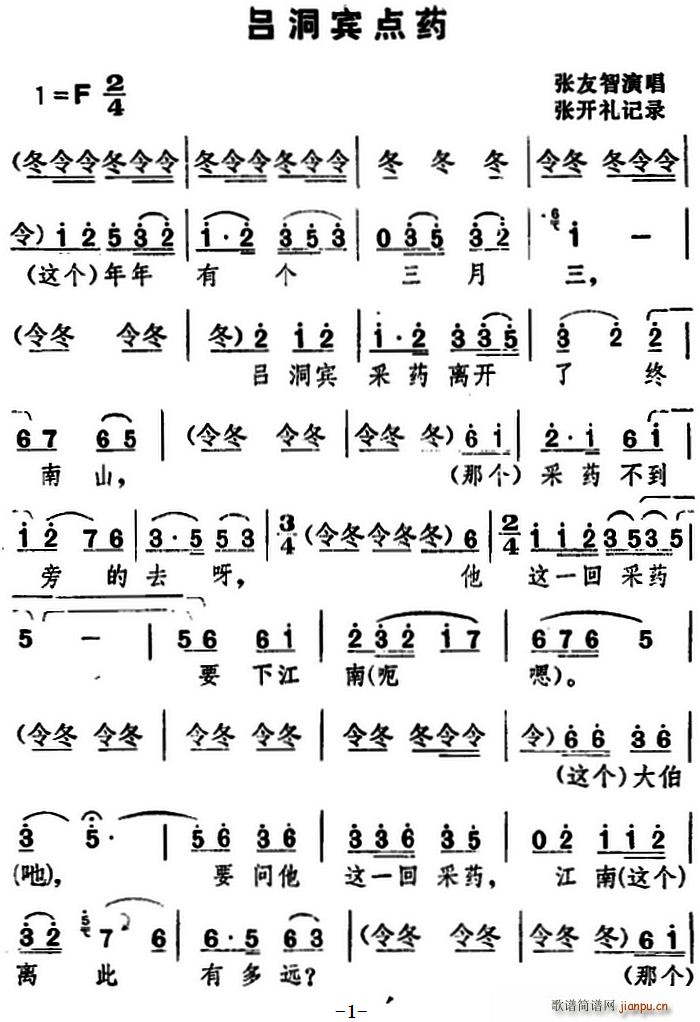 吕洞宾点药
1=F 2/4
张友智演唱
张开礼记录
(冬令令冬令令 | 冬令令冬令令 | 冬 冬 冬 | 令冬 冬令令 |
令) i 2 5 3 2 | i· 2 3 5 3 | 0 3 5 3 2 | 6 i — |
(这个)年年 有 个 三 月 三,
(令冬 令冬 | 冬) 2 i 2 | i· 2 3 3 5 | 3 2 2 |
吕 洞宾 采 药 离开 了 终
6 7 6 5 | (令冬 令冬 | 令冬 冬) 6 i | 2· i 6 i |
南 山, (那个) 采 药 不到
i 2 7 6 | 3· 5 5 3 | 3/4 (令冬令冬冬) 6 | 2/4 i i 2 3 5 3 5 |
旁 的 去 呀, 他 这一回 采药
5 — | 5 6 6 i | 2 3 2 i 7 | 6 7 6 5 |
要 下江 南(呃 嗯)。
(令冬 令冬 | 令冬 令冬 | 令冬 冬令令 | 令) 6 6 3 6 |
(这个)大伯
3 5· | 5 6 3 6 | 3 3 6 3 5 | 0 2 i i 2 |
(吔), 要 问他 这一回 采药, 江 南(这个)
3 2 5 7 6 | 6· 5 6 3 | (令冬 令冬 | 令冬 冬) 6 i |
离 此 有 多 远? (那个)
-1-
歌谱简谱网
jianpu.cn